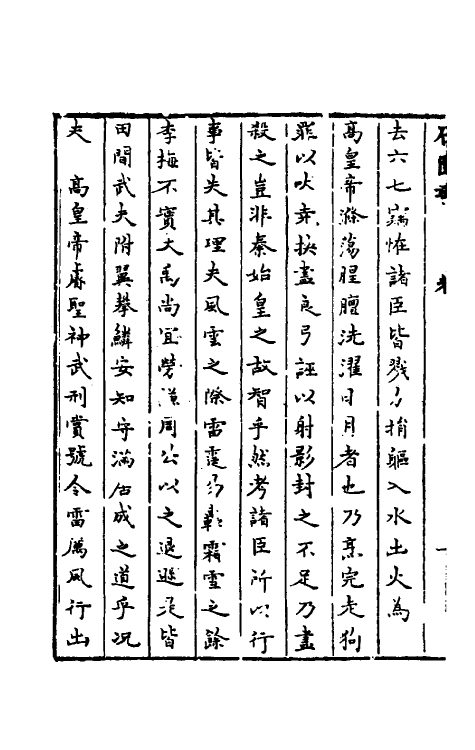 石匱書 卷 一
去六七竊恠諸臣皆戮力捐軀入水土火為
高皇帝滌蕩腥膻洗濯日月者也乃烹完走狗
罪以吠堯抉盡良弓誣以射影封之不足乃盡
殺之豈非秦始皇之故智乎然考諸臣所以行
事皆失其理夫風雲之際雷霆多轟霜雪之餘
李梅不實大禹尚宜勞謙周公以之退遜是皆
田間武夫附翼攀鱗安知守滿居成之道乎况
夫 高皇帝睿聖神武刑賞號令雷厲風行出